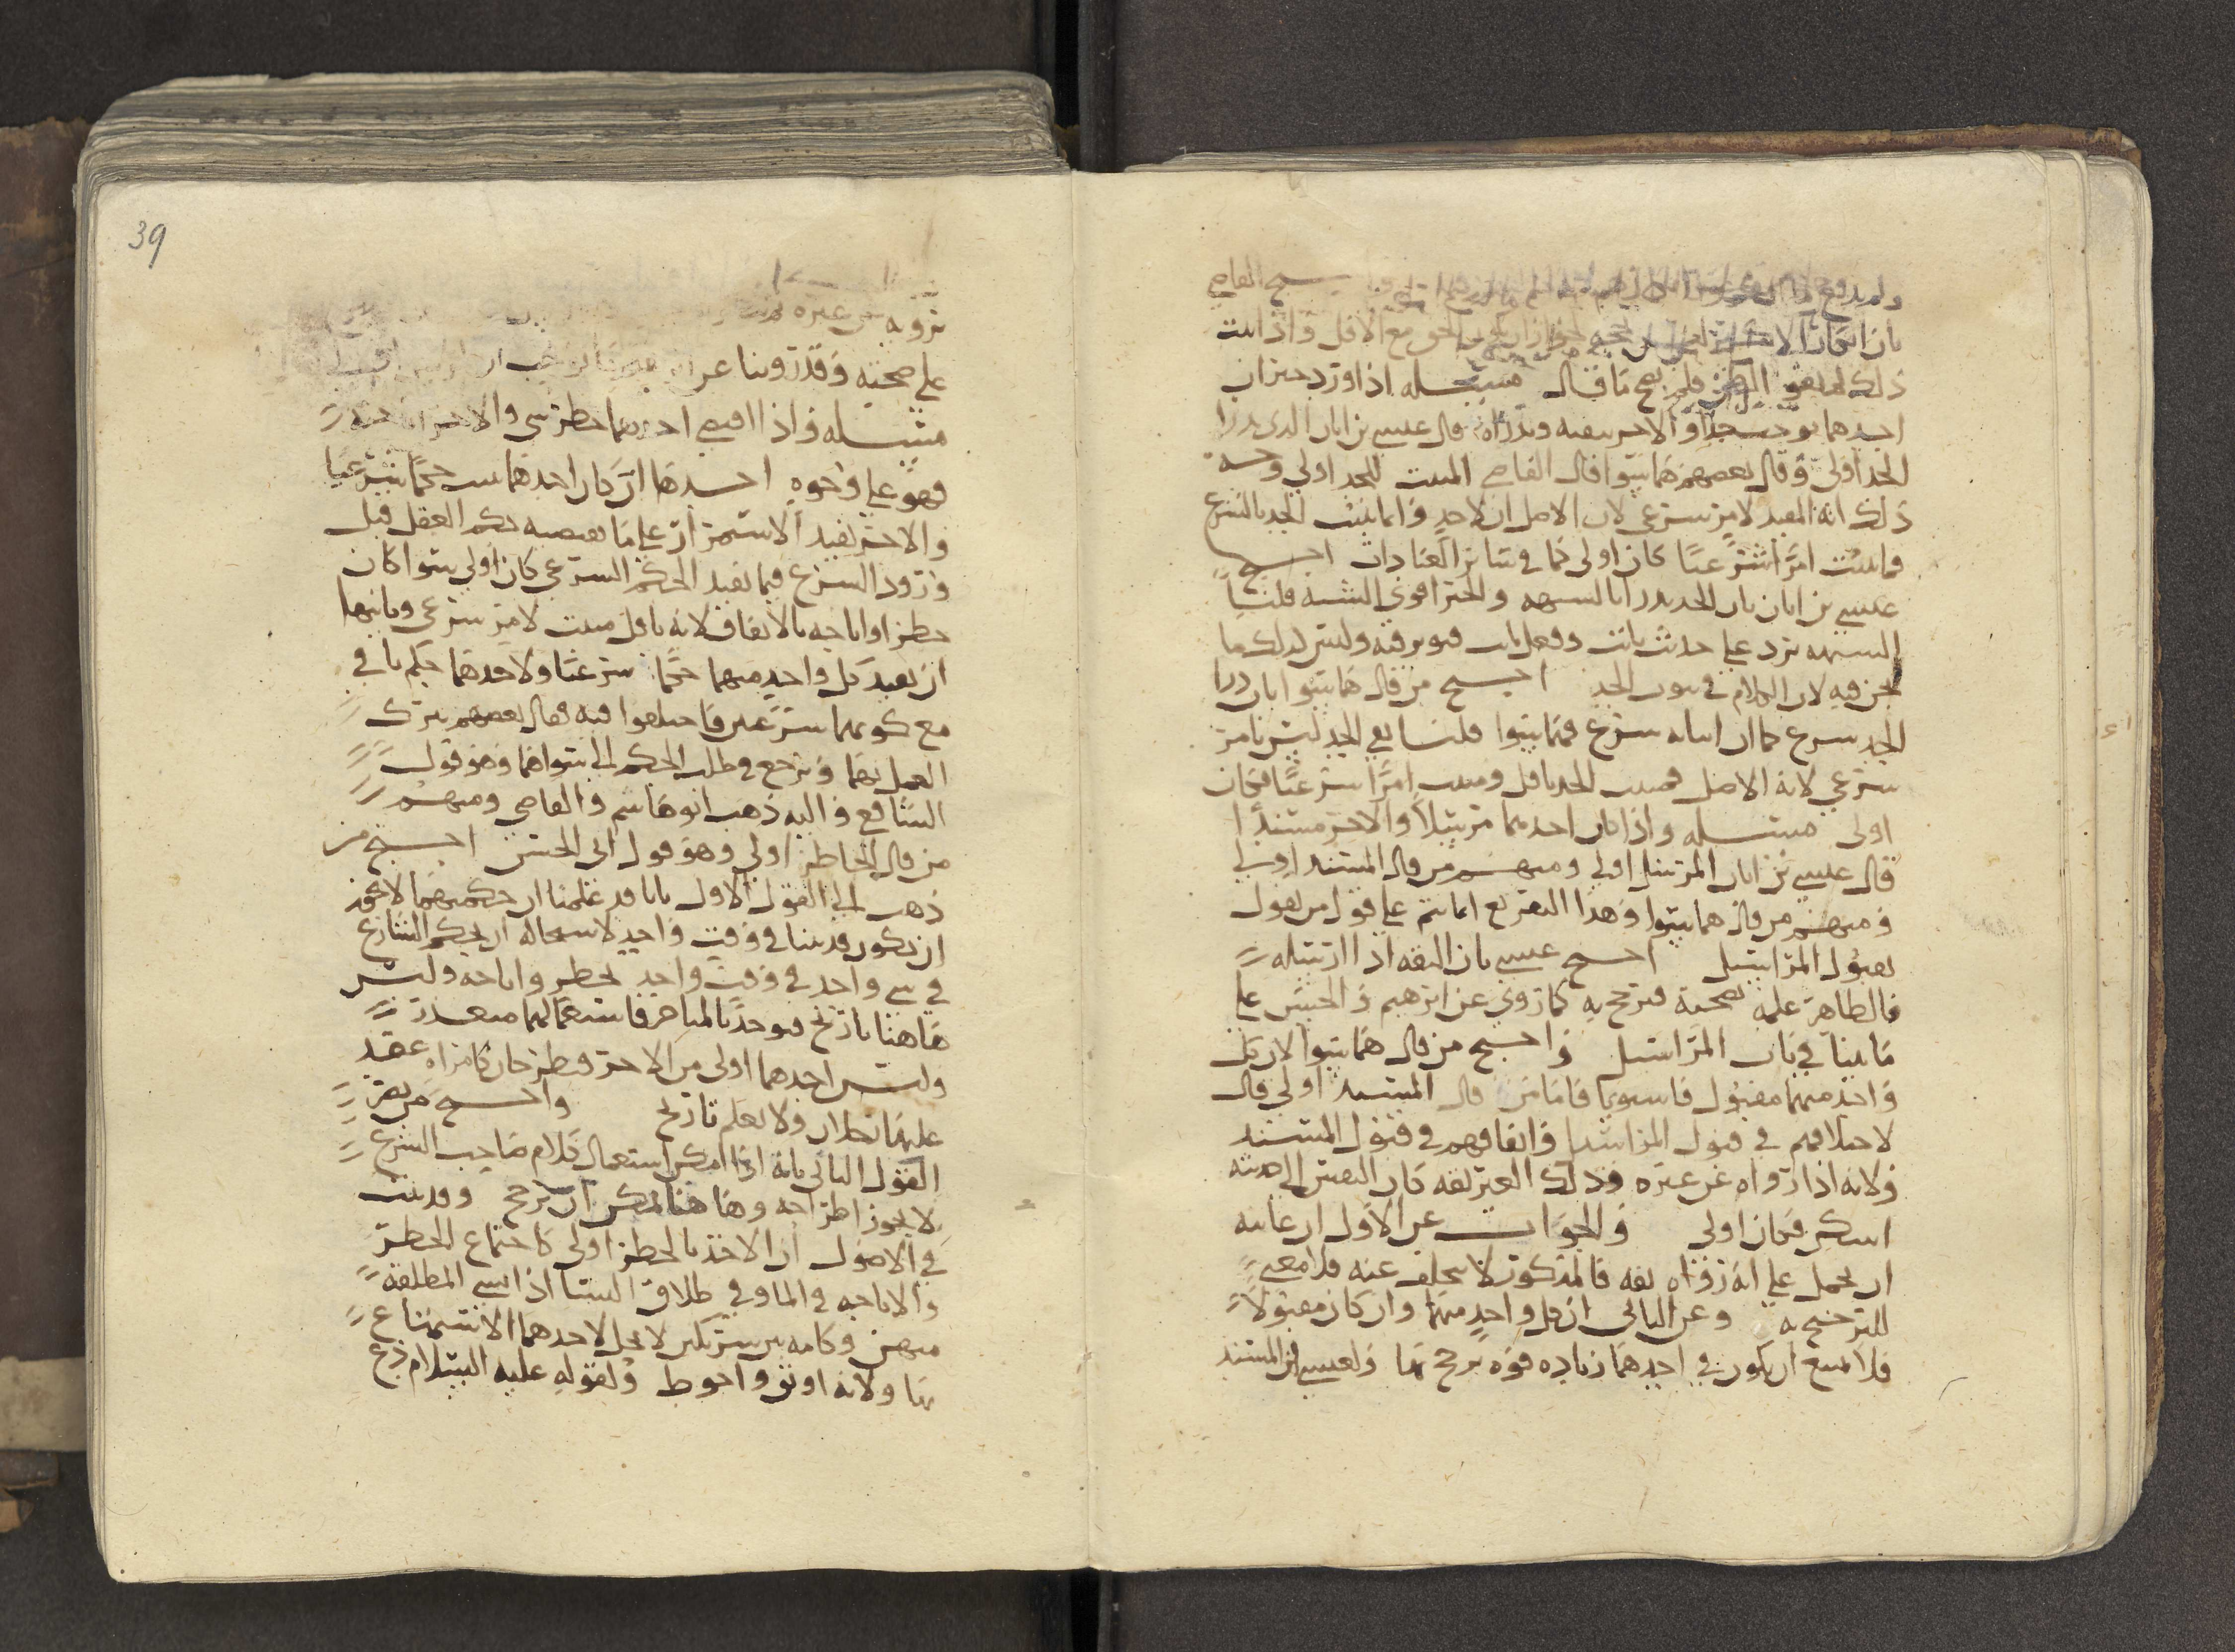 بان الحق مع الاقل واذا ثبت
ذلك فلم يصح ما قال مسئله اذا ورد خبران
احدهما يوجب حدا والاخر ينفيه ويدراه قال عيسى بن ابان الذي يدرا
الحد اولى وقال بعضهم هما سوا قال القاضي المثبت للحد اولى وجه
ذلك انه المفيد لامر شرعي لان الاصل ان لا حد وانما يثبت الحد بالشرع
فما يثبت امرا شرعيا كان اولى كما في سائر العبادات احتج
عيسى بن ابان بان الحد يدرا بالشبهه والخبر اقوى الشبه قلنا
الشبهه ترد على حدث ثابت وفعل ثابت فيوثر فيه وليس كذلك ما
نحن فيه لان الكلام في ثبوت الحد احتج من قال هما سوا بان درا
الحد شرع كما ان اثباته شرع فهما سوا قلنا نفي الحد ليس بامر
شرعي لانه الاصل فمثبت الحد ناقل ومثبت امرا شرعيا فكان
اولى مسئله واذا كان احدهما مرسلا والاخر مسندا
قال عيسى بن ابان المرسل اولى ومنهم من قال المسند اولى
ومنهم من قال هما سوا وهذا التفريع انما يتم على قول من يقول
بقبول المراسيل احتج عيسى بان الثقه اذا ارسله
فالظاهر علمه بصحته فترجح به كما روي عن ابرهيم والحسن على
ما بينا في باب المراسيل واحتج من قال هما سوا لان كل
واحد منهما مقبول فاستويا فاما من قال المسند اولى قال
لاختلافهم في قبول المراسيل واتفاقهم في قبول المسند
ولانه اذا رواه عن غيره وذلك الغير ثقه كان النفس الى حديثه
اسكن فكان اولى والجواب عن الاول ان غايته
ان يحمل على انه رواه ثقه فالمذكور لا يختلف عنه فلا معنى
للترجيح به وعن الثاني ان كل واحد منهما وان كان مقبولا
فلا يمتنع ان يكون في احدهما زياده قوه ترجح بها ولعيسى ان المسند
39
يرويه عن غيره
على صحته وقد روينا عن
مسئله واذا اقتضى احدهما حظر شي والاخر اباحته
فهو على وجوه احدها ان كان احدهما يثبت حكما شرعيا
والاخر يفيد الاستمرار على ما يقتضيه حكم العقل قبل
ورود الشرع فما يفيد الحكم الشرعي كان اولى سوا كان
حظرا او اباحه بالاتفاق لانه ناقل مثبت لامر شرعي وثانيها
ان يفيد كل واحد منهما حكما شرعيا ولاحدهما حكم نافي
مع كونهما شرعيين فاختلفوا فيه فقال بعضهم يترك
العمل بهما ويرجع في طلب الحكم الى سواهما وهو قول
الشافعي واليه ذهب ابو هاشم والقاضي ومنهم
من قال الحاظر اولى وهو قول ابي الحسن احتج من
ذهب الى القول الاول بانا قد علمنا ان حكمهما لا يجوز
ان يكون قد بينا في وقت واحد لاستحاله ان يحكم الشارع
في شي واحد في وقت واحد بحظر واباحه وليس
هاهنا تاريخ فيوخذ بالمتاخر فاستعمالهما متعذر
وليس احدهما اولى من الاخر فيطرحان كامراه عقد
عليها نكاحان ولا يعلم تاريخ واحتج من نصر
القول الثاني بانه اذا امكن استعمال كلام صاحب الشرع
لا يجوز اطراحه وهاهنا يمكن ان يرجح وقد ثبت
في الاصول ان الاخذ بالحظر اولى كاجتماع الحظر
والاباحه في الما وفي طلاق النسا اذا نسي المطلقه
منهن وكامه بين شريكين لا يحل لاحدهما الاستمتاع
بها ولانه اوثق واحوط ولقوله عليه السلام دع